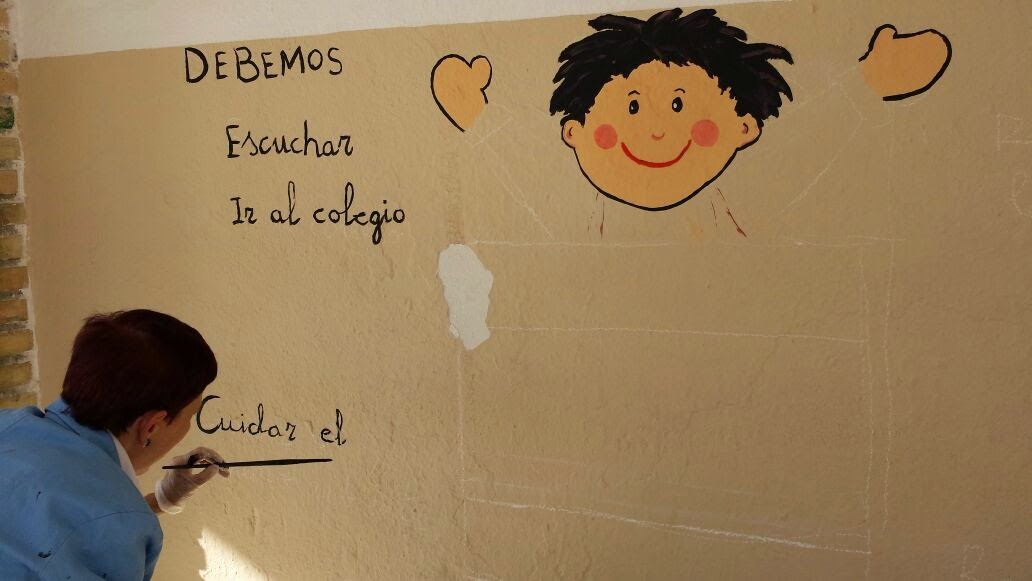 DEBEMOS
Escuchar
Ir al colegio
Cuidar el